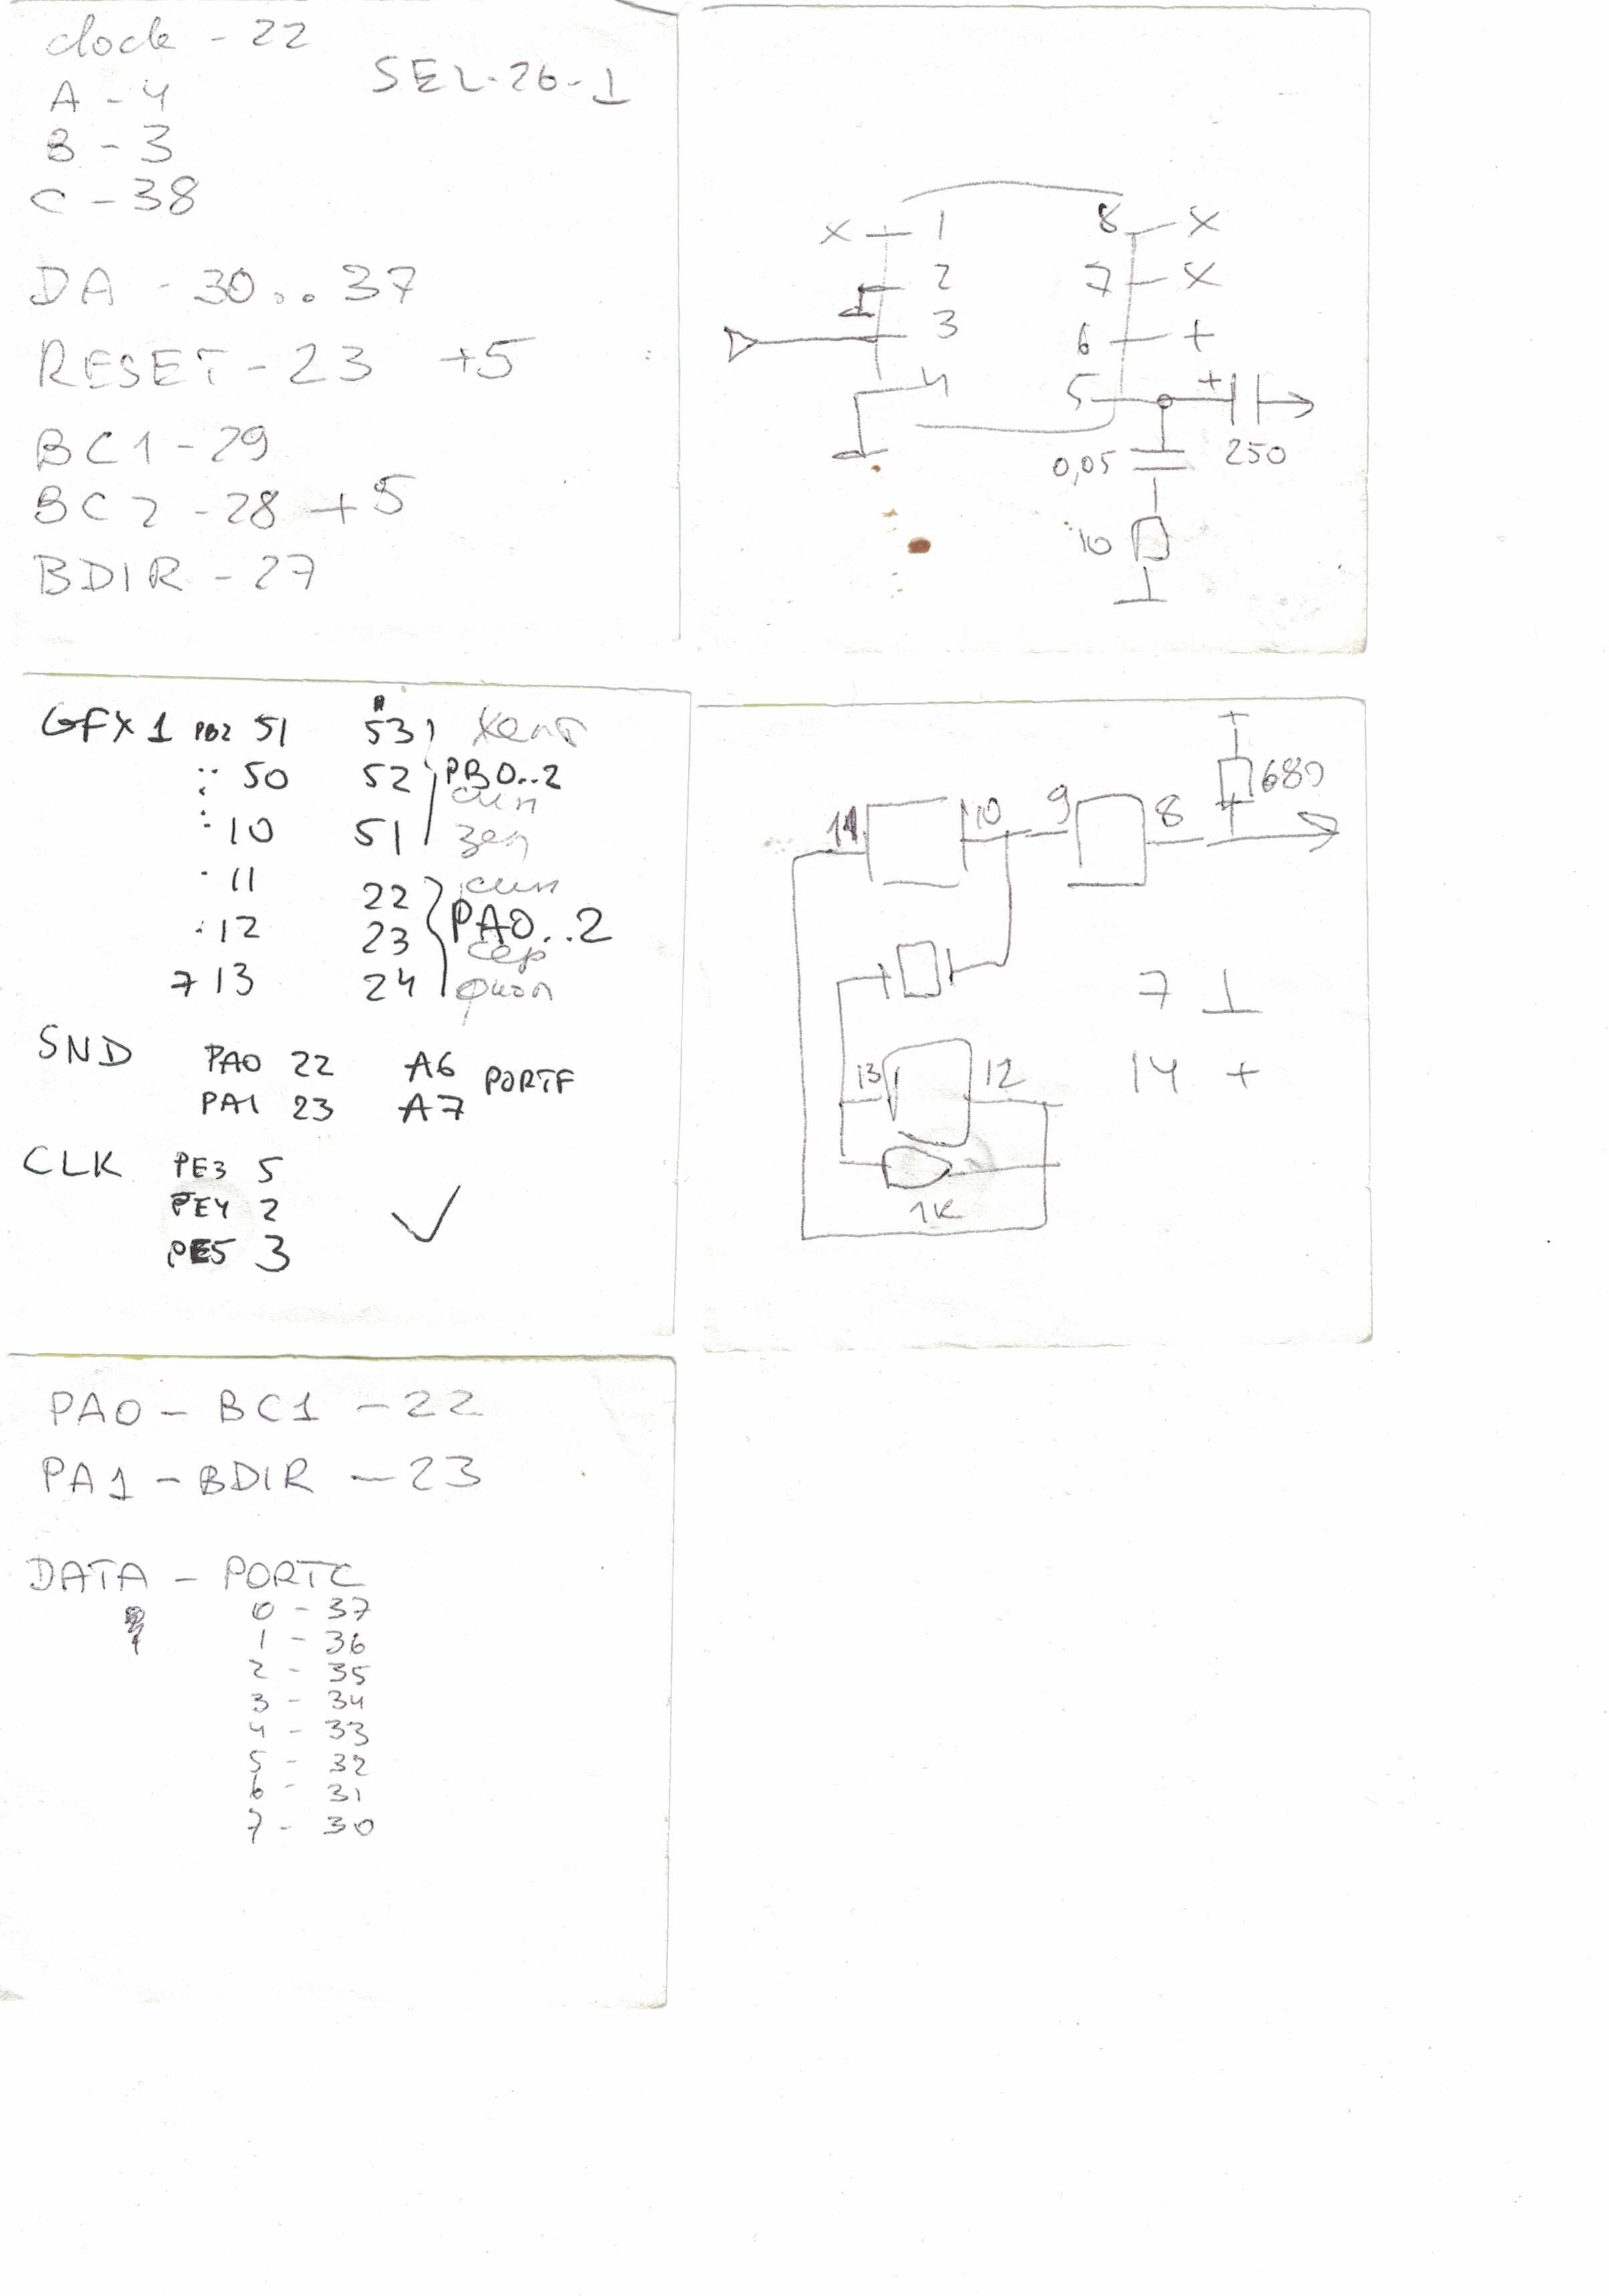 clock - 22
SEL-26-⊥
A - 4
B - 3
C - 38
DA - 30..37
RESET - 23 +5
BC1 - 29
BC2 - 28 +5
BDIR - 27
X 1 8 X
2 7 X
3 6 +
4 5 +
0,05 250
10
GFX1 PB2 51 53 желт
50 52 PB0..2
син
10 51 зел
11 22 син
12 23 PA0..2
сер
7 13 24 фиол
SND PA0 22 A6 PORTF
PA1 23 A7
CLK PE3 5
PE4 2
PE5 3
680
11 10 9 8
7 ⊥
13 12 14 +
1K
PA0 - BC1 - 22
PA1 - BDIR - 23
DATA - PORTC
0 - 37
1 - 36
2 - 35
3 - 34
4 - 33
5 - 32
6 - 31
7 - 30